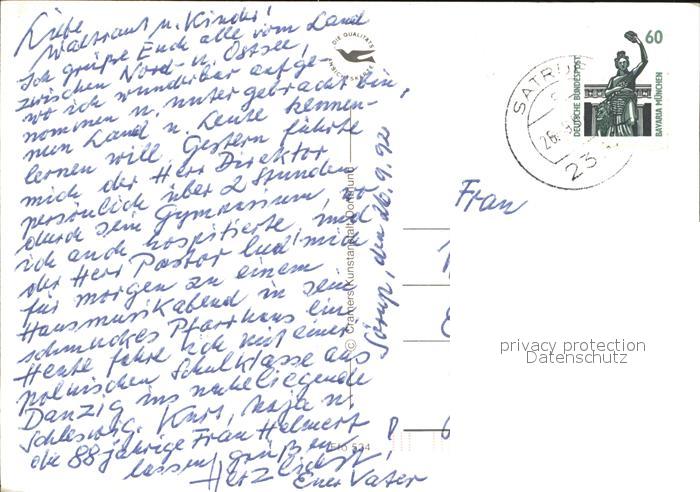 Liebe
Waltraut u. Kinder!
Ich grüße Euch alle vom Land
zwischen Nord- u. Ostsee,
wo ich wunderbar aufge-
nommen u. untergebracht bin,
nun Land u. Leute kennen-
lernen will. Gestern führte
mich der Herr Direktor
persönlich über 2 Stunden
durch sein Gymnasium, wo
ich auch hospitierte, und
der Herr Pastor lud mich
für morgen zu einem
Hausmusikabend in sein
schmuckes Pfarrhaus ein.
Heute fahre ich mit einer
polnischen Schulklasse aus
Danzig ins naheliegende
Schleswig. Kurt, Maja u.
die 88jährige Frau Helmert
lassen grüßen!
Herzlichst,
Euer Vater
Sörup, den 26.9.92
DIE QUALITÄTS
© Cramers Kunstanstalt, Dortmund
534
60
DEUTSCHE BUNDESPOST
BAYARIA MÜNCHEN
SATRU
26.
23
Frau
privacy protection
Datenschutz